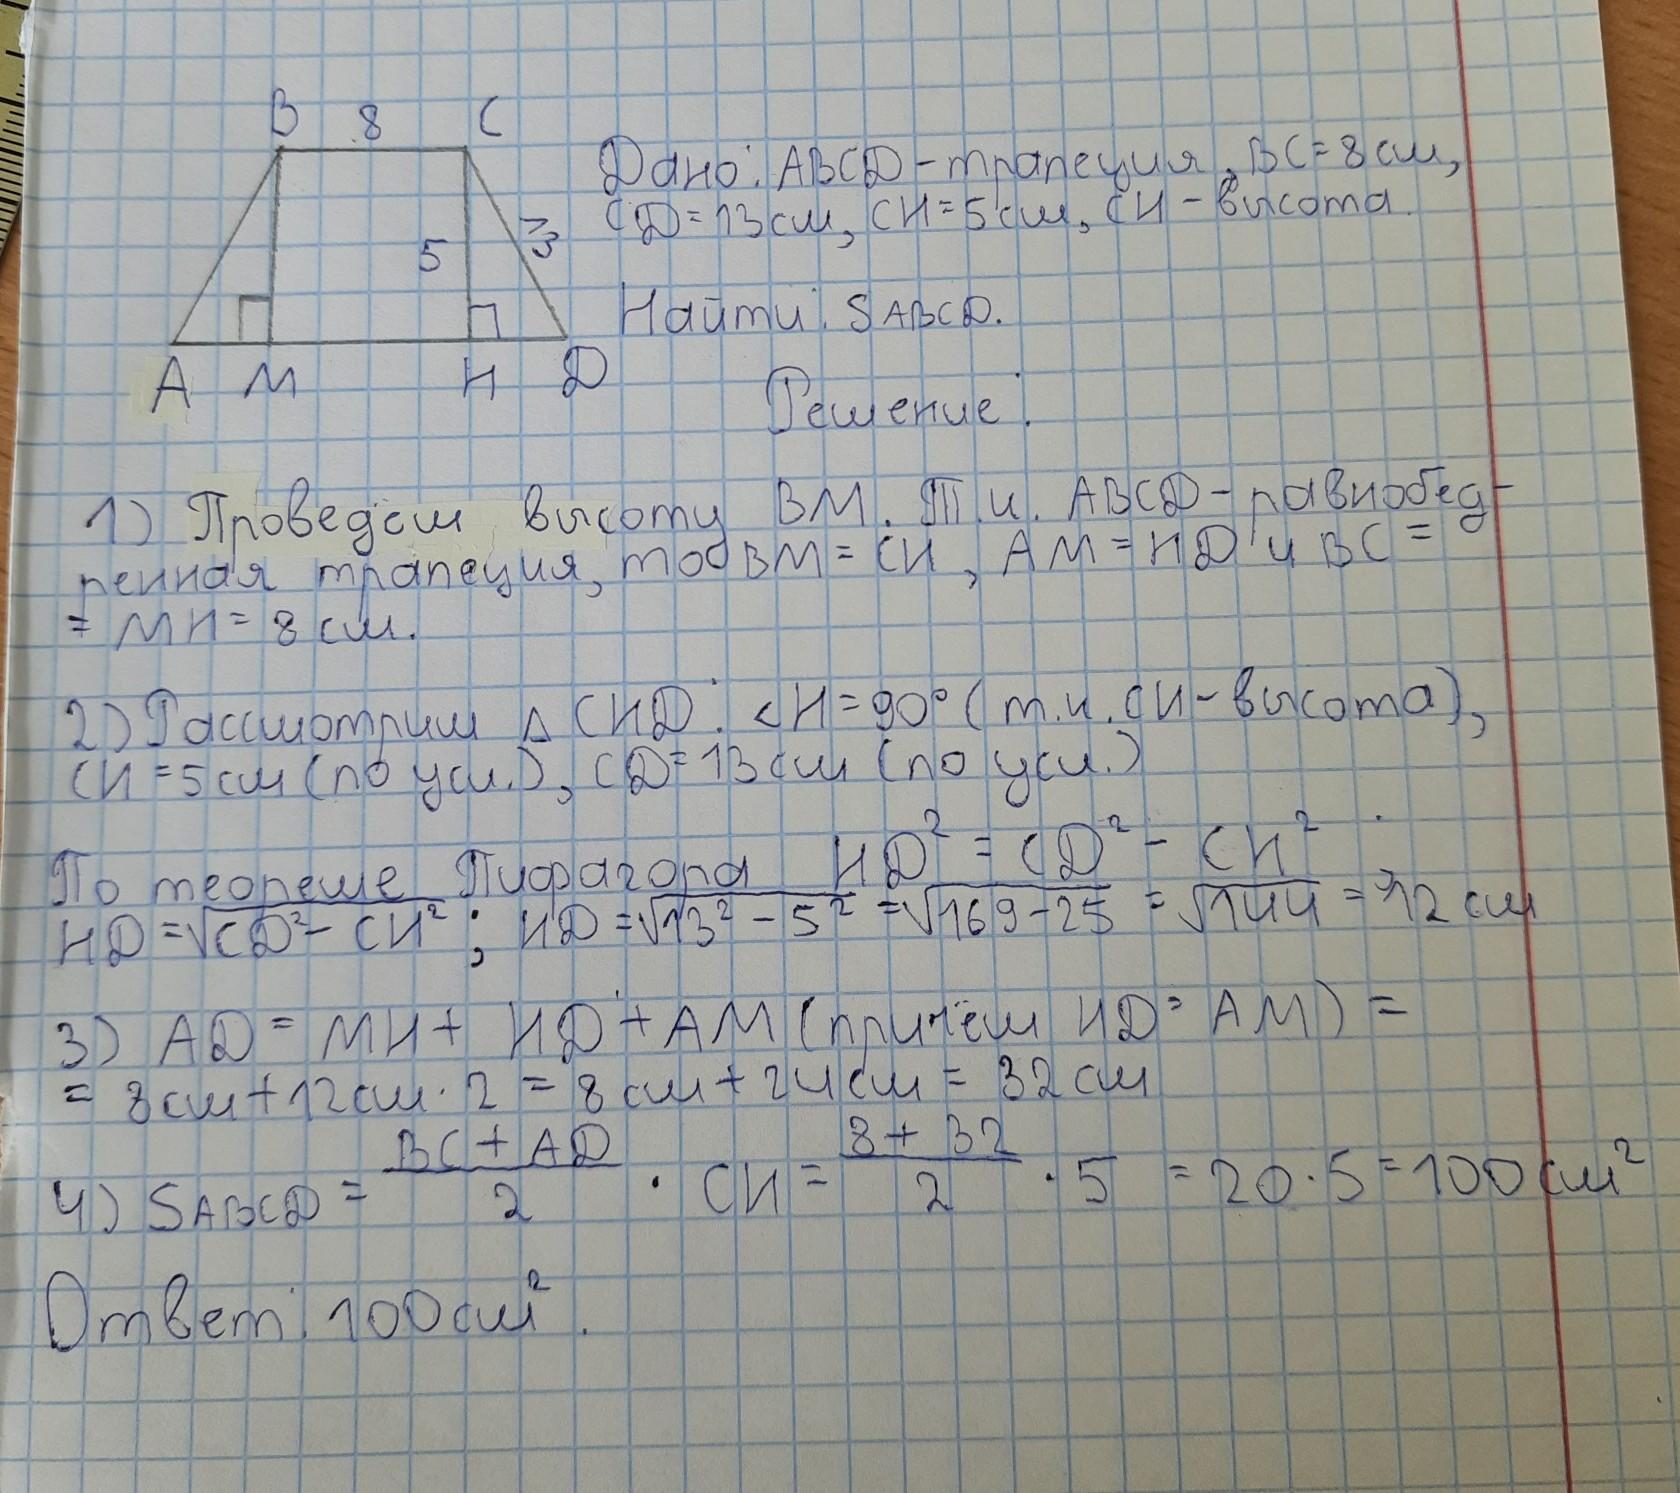 B 8 C
Дано: ABCD - трапеция, BC = 8 см,
CD = 13 см, CH = 5 см, CH - высота.
5 13
Найти: SABCD.
A M H D
Решение:
1) Проведём высоту BM. Т.к. ABCD - равнобед-
ренная трапеция, то BM = CH, AM = HD и BC =
= MH = 8 см.
2) Рассмотрим △ CHD: <H = 90° (т.к. CH - высота),
CH = 5 см (по усл.), CD = 13 см (по усл.)
По теореме Пифагора HD² = CD² - CH²
HD = √CD² - CH² ; HD = √13² - 5² = √169 - 25 = √144 = 12 см
3) AD = MH + HD + AM (причём HD = AM) =
= 8 см + 12 см · 2 = 8 см + 24 см = 32 см
4) SABCD = BC + AD / 2 · CH = 8 + 32 / 2 · 5 = 20 · 5 = 100 см²
Ответ: 100 см².